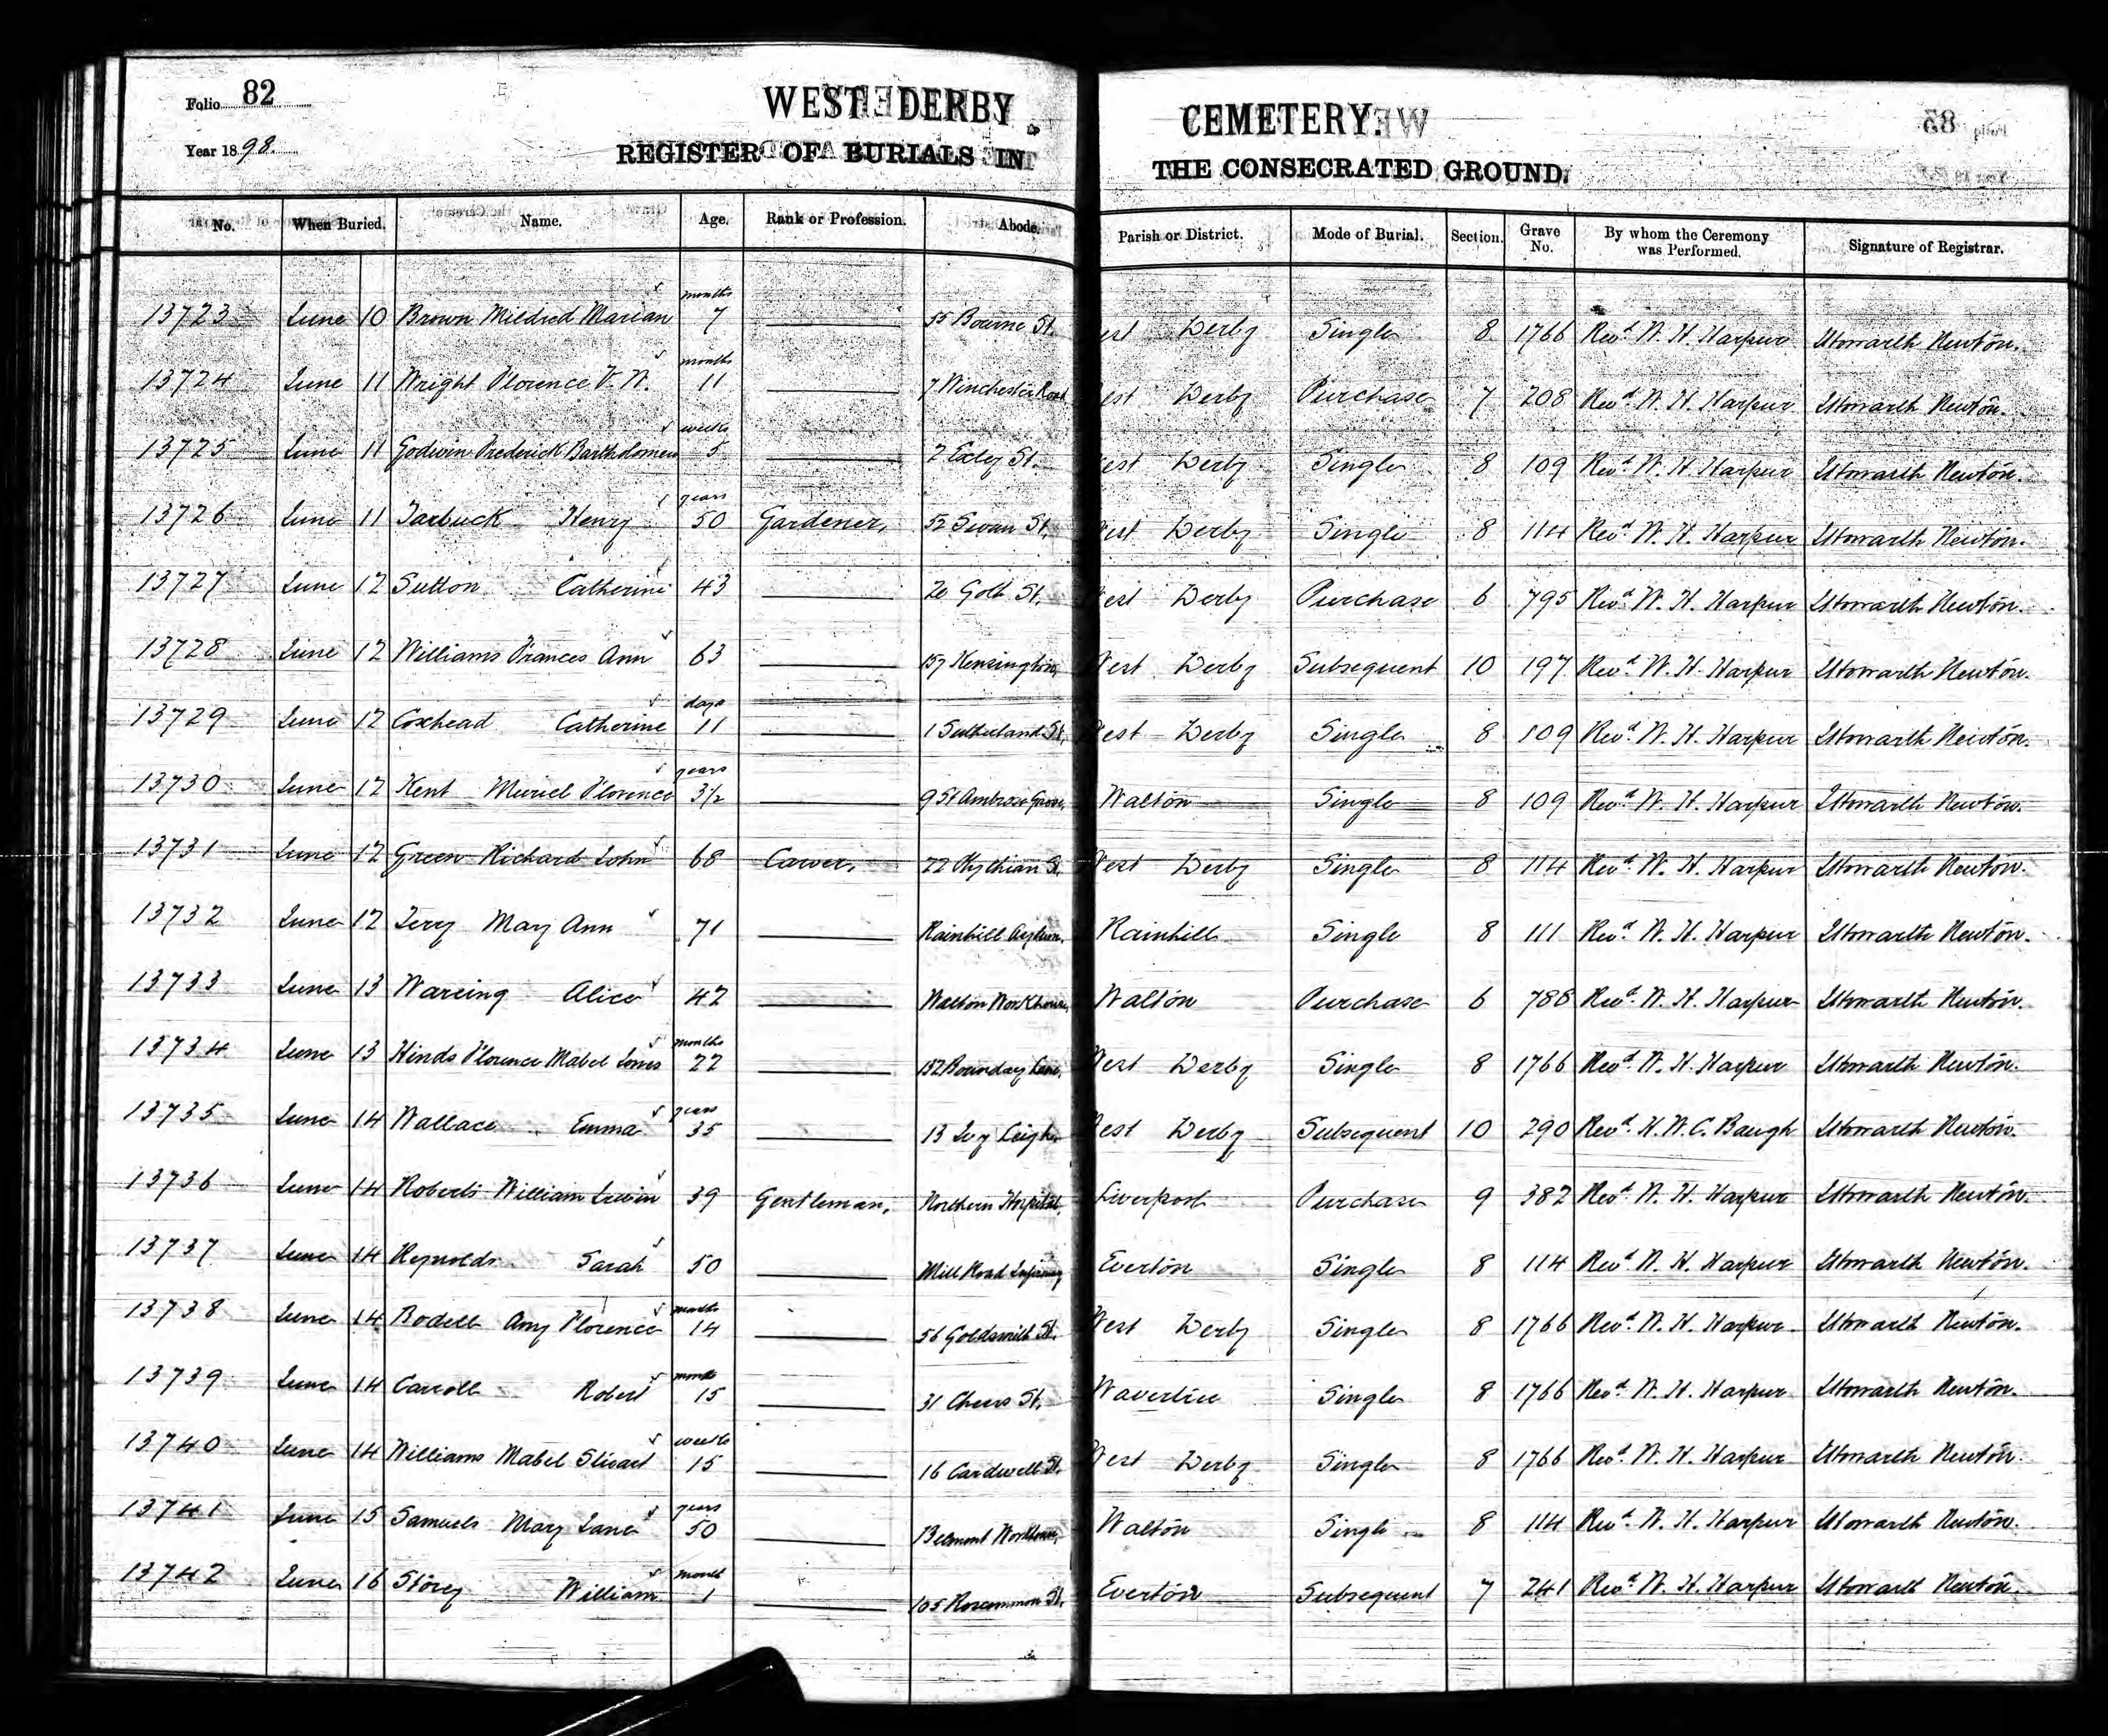 Folio 82
Year 1898.
WEST DERBY CEMETERY.
REGISTER OF BURIALS IN THE CONSECRATED GROUND.
No. When Buried. Name. Age. Rank or Profession. Abode. Parish or District. Mode of Burial. Section. Grave No. By whom the Ceremony was Performed. Signature of Registrar.
13723 June 10 Brown Mildred Marian 7 months 55 Bourne St. West Derby Single 8 1766 Revd. W. H. Harpur Howarth Newton.
13724 June 11 Wright Florence V. W. 11 months 7 Winchester Road West Derby Purchase 7 208 Revd. W. H. Harpur Howarth Newton.
13725 June 11 Godwin Frederick Bartholomew 5 weeks 2 Exley St. West Derby Single 8 109 Revd. W. H. Harpur Howarth Newton.
13726 June 11 Tarbuck Henry 50 years Gardener, 52 Swan St. West Derby Single 8 114 Revd. W. H. Harpur Howarth Newton.
13727 June 12 Sutton Catherine 43 20 Goth St. West Derby Purchase 6 795 Revd. W. H. Harpur Howarth Newton.
13728 June 12 Williams Frances Ann 63 157 Kensington, West Derby Subsequent 10 197 Revd. W. H. Harpur Howarth Newton.
13729 June 12 Coxhead Catherine 11 days 1 Sutherland St. West Derby Single 8 109 Revd. W. H. Harpur Howarth Newton.
13730 June 12 Kent Muriel Florence 3½ years 9 St Ambrose Grove, Walton Single 8 109 Revd. W. H. Harpur Howarth Newton.
13731 June 12 Green Richard John 68 Carver, 22 Phythian St. West Derby Single 8 114 Revd. W. H. Harpur Howarth Newton.
13732 June 12 Terry Mary Ann 71 Rainhill Asylum, Rainhill Single 8 111 Revd. W. H. Harpur Howarth Newton.
13733 June 13 Wareing Alice 42 Walton Workhouse, Walton Purchase 6 788 Revd. W. H. Harpur Howarth Newton.
13734 June 13 Hinds Florence Mabel Jones 22 months 152 Boundary Lane, West Derby Single 8 1766 Revd. W. H. Harpur Howarth Newton.
13735 June 14 Wallace Emma 35 years 13 Ivy Leigh, West Derby Subsequent 10 290 Revd. H. W. C. Baugh Howarth Newton.
13736 June 14 Roberts William Irwin 39 Gentleman, Northern Hospital, Liverpool Purchase 9 382 Revd. W. H. Harpur Howarth Newton.
13737 June 14 Reynolds Sarah 50 Mill Road Infirmary Everton Single 8 114 Revd. W. H. Harpur Howarth Newton.
13738 June 14 Bodell Amy Florence 14 months 56 Goldsmith St. West Derby Single 8 1766 Revd. W. H. Harpur Howarth Newton.
13739 June 14 Carroll Robert 15 months 31 Cheers St. Wavertree Single 8 1766 Revd. W. H. Harpur Howarth Newton.
13740 June 14 Williams Mabel Stuart 15 weeks 16 Cardwell St. West Derby Single 8 1766 Revd. W. H. Harpur Howarth Newton.
13741 June 15 Samuels Mary Jane 50 years Belmont Workhouse, Walton Single 8 114 Revd. W. H. Harpur Howarth Newton.
13742 June 16 Storey William 1 month 105 Roscommon St. Everton Subsequent 7 241 Revd. W. H. Harpur Howarth Newton.